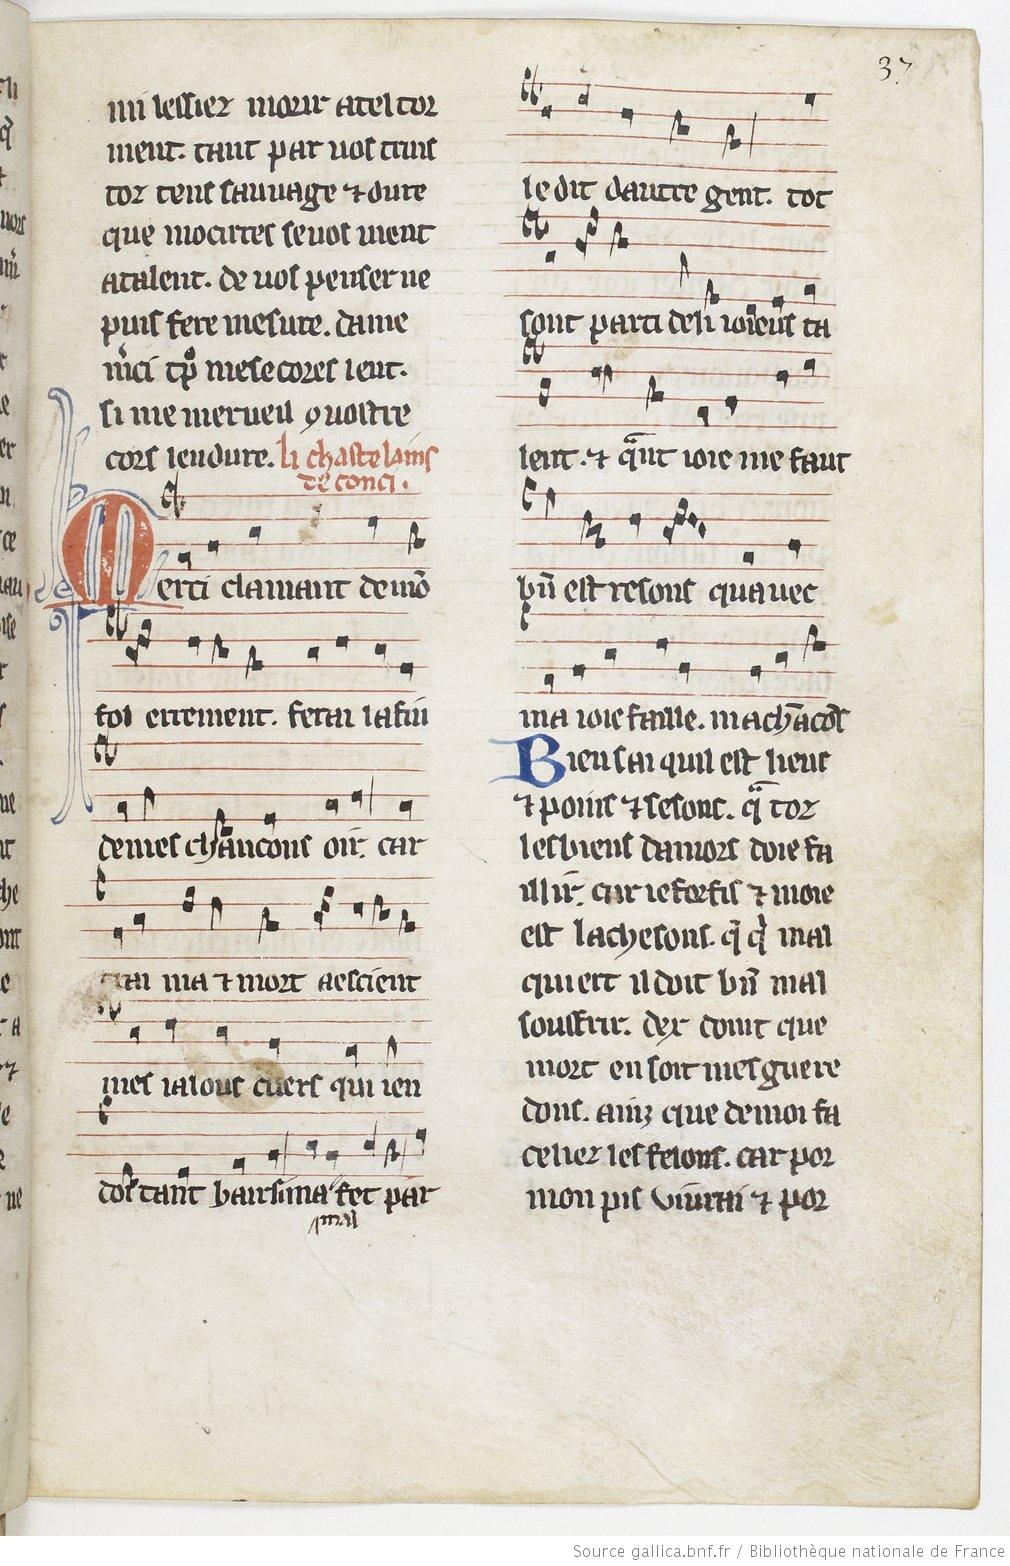 37
mi lessier morir a tel tor
ment. tant par vos truis
tor tens sauvage ⁊ dure
que mocirres se vos vient
a talent. de vos penser ne
puis fere mesure. dame
m̓ci tp̄ me secores lent.
si me merveil ꝯ vostre
cors lendure. li chastelains
de couci.
Merci clamant de mō
fol errement. ferai la fin
de mes chāncons oir̄. car
trai ma ⁊ mort a escient
mes ialous cuers qui ien
doi tant hair si ma fet par
mal
le dit dautre gent. tot
sont parti de li ioieus ta
lent. ⁊ q̄nt ioie me faut
bn̄ est resons quavec
ma ioie faille. ma chācōs
Bien sai quil est lieus
⁊ poins ⁊ sesons. q̄ tor
les biens damors doie fa
illir̄. car ie forfis ⁊ moie
est lachesons. q̄ q̓ mal
quiert il doit bn̄ mal
souffrir. dex doint que
mort en soit mes guere
dons. ainz que de moi fa
ce liez les felons. car por
mon pis vivrai ⁊ por
Source gallica.bnf.fr / Bibliothèque nationale de France